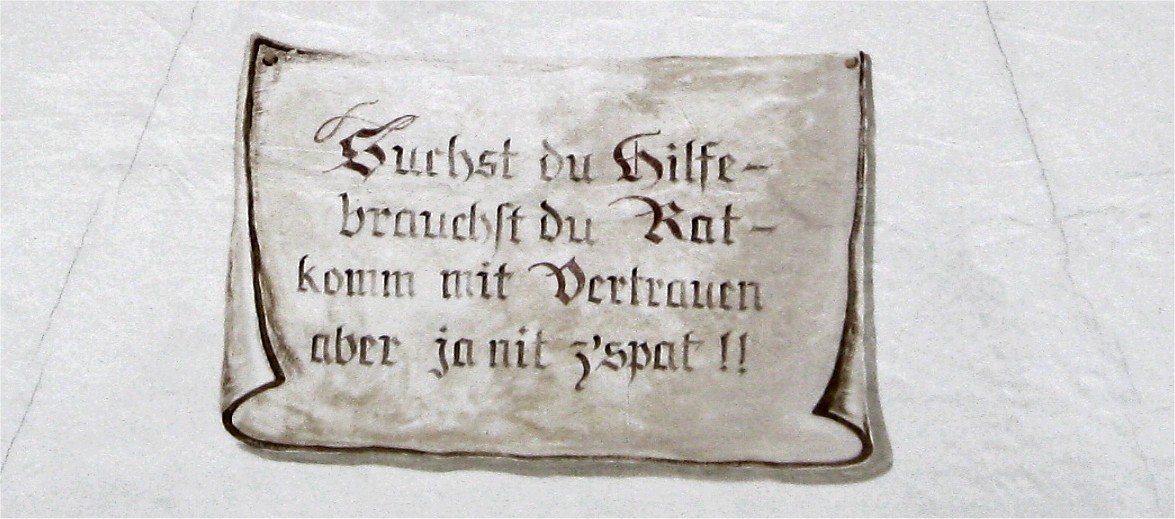 Suchst du Hilfe-
brauchst du Rat-
komm mit Vertrauen
aber ja nit z'spat !!